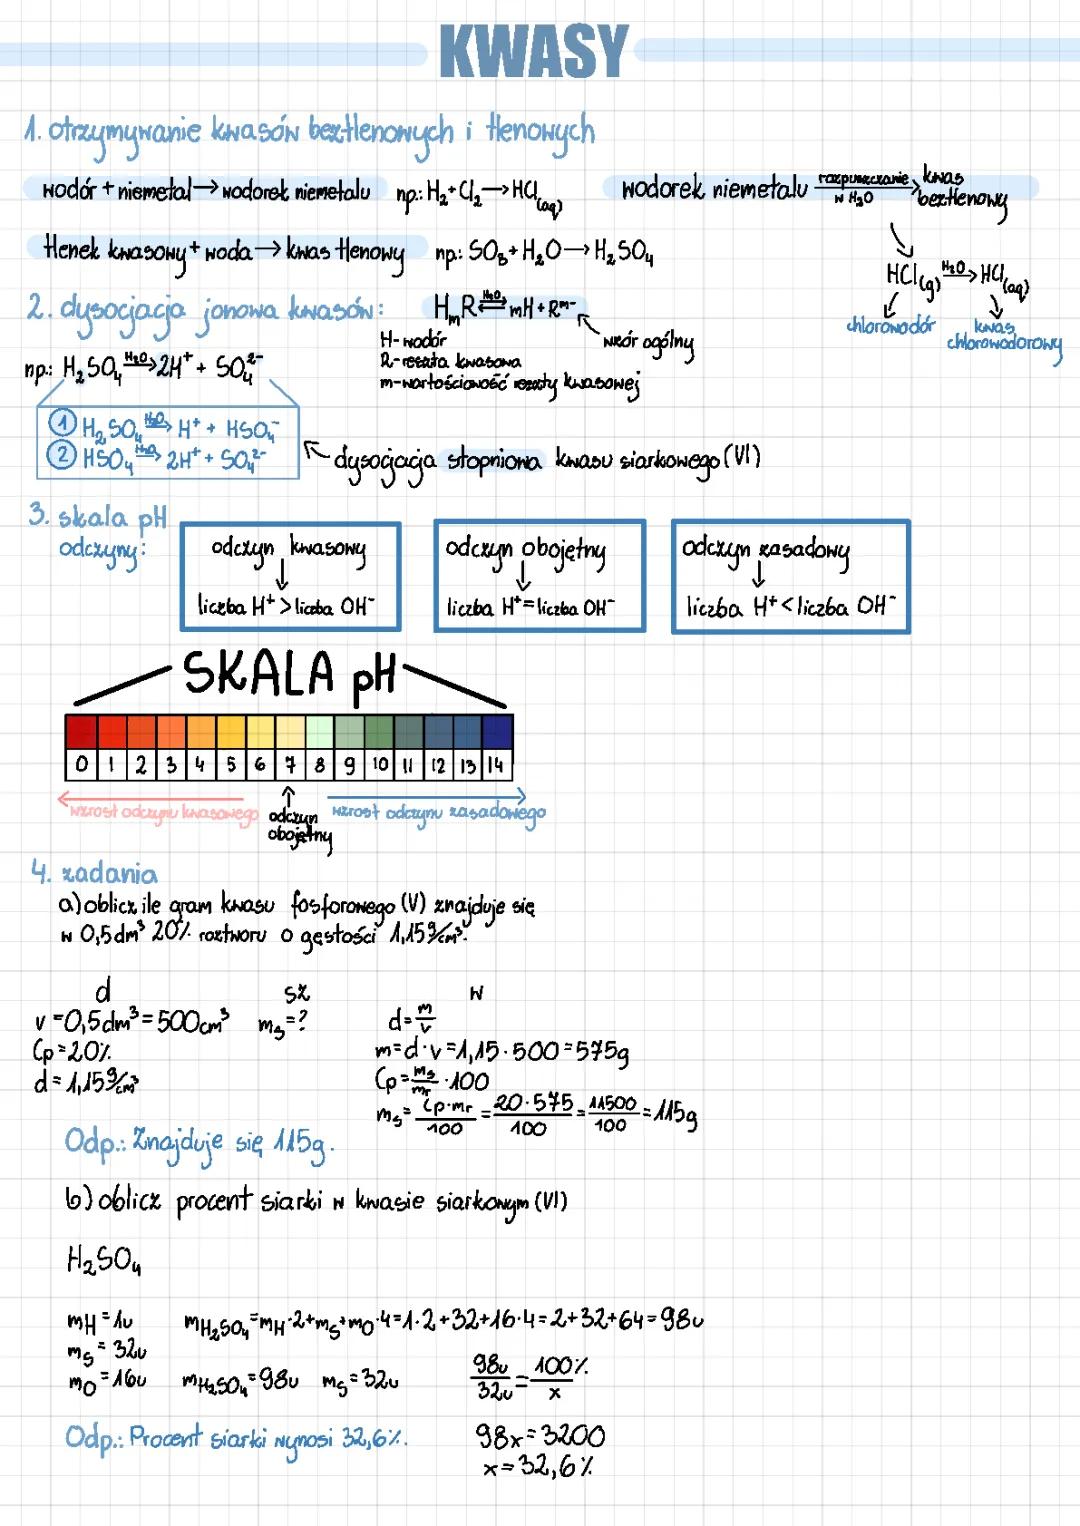 KWASY
1. otrzymywanie kwasów beztlenowych i tlenowych
wodór + niemetal → wodorek niemetalu np.: H₂+Cl₂ → HCl(aq)
wodorek niemetalu rozpuszczanie w H₂O → kwas beztlenowy
HCl(g) H₂O→ HCl(aq)
chlorowodór kwas chlorowodorowy
tlenek kwasowy + woda → kwas tlenowy np.: SO₃+H₂O → H₂SO₄
2. dysocjacja jonowa kwasów: HmR H₂O⇌ mH + Rᵐ⁻ wzór ogólny
H- wodór
R- reszta kwasowa
m- wartościowość reszty kwasowej
np.: H₂SO₄ H₂O→ 2H⁺ + SO₄²⁻
1 H₂SO₄ H₂O→ H⁺ + HSO₄⁻
2 HSO₄ H₂O→ 2H⁺ + SO₄²⁻
dysocjacja stopniowa kwasu siarkowego (VI)
3. skala pH
odczyny:
odczyn kwasowy
↓
liczba H⁺ > liczba OH⁻
odczyn obojętny
↓
liczba H⁺ = liczba OH⁻
odczyn zasadowy
↓
liczba H⁺ < liczba OH⁻
SKALA pH
0 1 2 3 4 5 6 7 8 9 10 11 12 13 14
wzrost odczynu kwasowego
odczyn obojętny
wzrost odczynu zasadowego
4. zadania
a) oblicz ile gram kwasu fosforowego (V) znajduje się
w 0,5dm³ 20% roztworu o gęstości 1,15g/cm³.
d sz w
v = 0,5dm³ = 500cm³ ms = ? d = m/v
Cp = 20% m = d·v = 1,15·500 = 575g
d = 1,15g/cm³ Cp = ms/mr · 100
ms = Cp·mr/100 = 20·575/100 = 11500/100 = 115g
Odp.: Znajduje się 115g.
b) oblicz procent siarki w kwasie siarkowym (VI)
H₂SO₄
mH = 1u mH₂SO₄ = mH·2+mS+mO·4 = 1·2+32+16·4 = 2+32+64 = 98u
mS = 32u
mO = 16u mH₂SO₄ = 98u mS = 32u 98u/32u = 100%/x
Odp.: Procent siarki wynosi 32,6%. 98x = 3200
x = 32,6%